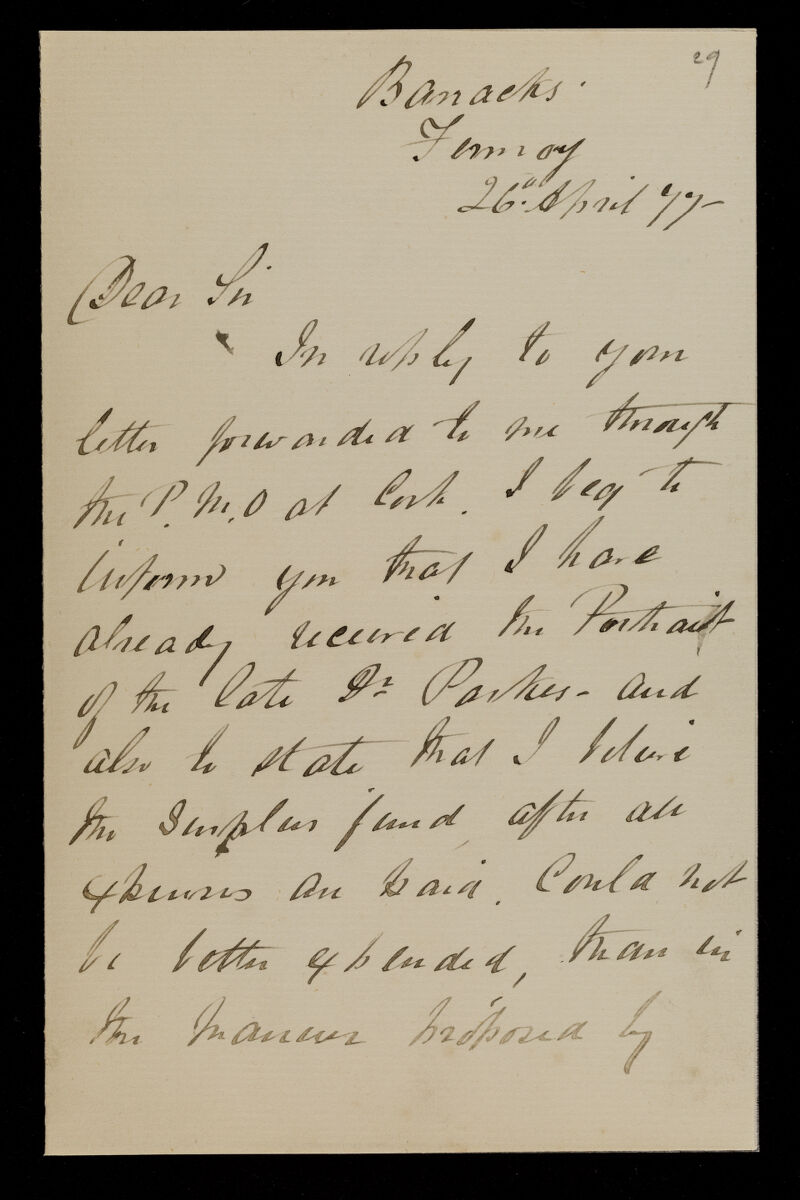 29
Barracks.
Fermoy
26th April 77-
Dear Sir
In reply to your
letter forwarded to me through
the P.M.O at Cork. I beg to
inform you that I have
already received the Portrait
of the late Dr Parkes - and
also to state that I believe
the Surplus fund, after all
expenses are paid. Could not
be better expended, than in
the manner proposed by